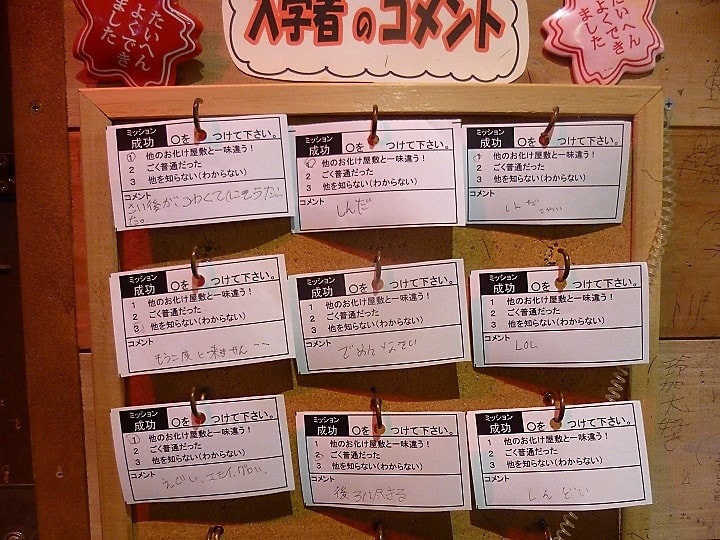 たいへん
よくでき
ました
入学者のコメント
たいへん
よくでき
ました
ミッション
成功
○を つけて下さい。
1 他のお化け屋敷と一味違う！
2 ごく普通だった
3 他を知らない(わからない)
コメント
さい後がこわくて
た。
ミッション
成功
○を つけて下さい。
1 他のお化け屋敷と一味違う！
2 ごく普通だった
3 他を知らない(わからない)
コメント
しんだ
ミッション
成功
○を つけて下さい。
1 他のお化け屋敷と一味違う！
2 ごく普通だった
3 他を知らない(わからない)
コメント
ミッション
成功
○を つけて下さい。
1 他のお化け屋敷と一味違う！
2 ごく普通だった
3 他を知らない(わからない)
コメント
もう二度と来ません
ミッション
成功
○を つけて下さい。
1 他のお化け屋敷と一味違う！
2 ごく普通だった
3 他を知らない(わからない)
コメント
ミッション
成功
○を つけて下さい。
1 他のお化け屋敷と一味違う！
2 ごく普通だった
3 他を知らない(わからない)
コメント
LOL
ミッション
成功
○を つけて下さい。
1 他のお化け屋敷と一味違う！
2 ごく普通だった
3 他を知らない(わからない)
コメント
ミッション
成功
○を つけて下さい。
1 他のお化け屋敷と一味違う！
2 ごく普通だった
3 他を知らない(わからない)
コメント
ミッション
成功
○を つけて下さい。
1 他のお化け屋敷と一味違う！
2 ごく普通だった
3 他を知らない(わからない)
コメント
しんどい